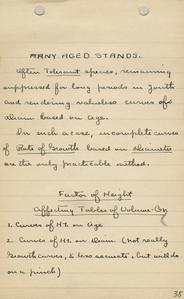 MANY AGED STANDS.
Often Tolerant species, remaining
suppressed for long periods in youth
and rendering valueless curves of
Diam based on Age.
In such a case, incomplete curves
of Rate of Growth based on Diameter
are the only practicable method.
Factor of Height
Affecting Tables of Volume
1. Curves of Ht. on Age
2. Curves of Ht. on Diam (not really
Growth curves, & less accurate, but will do
on a pinch)
38